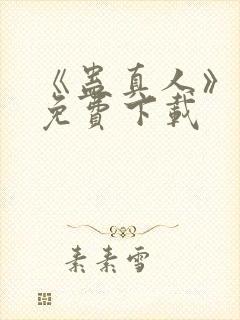 《蛊真人》
免費下載
素素雪